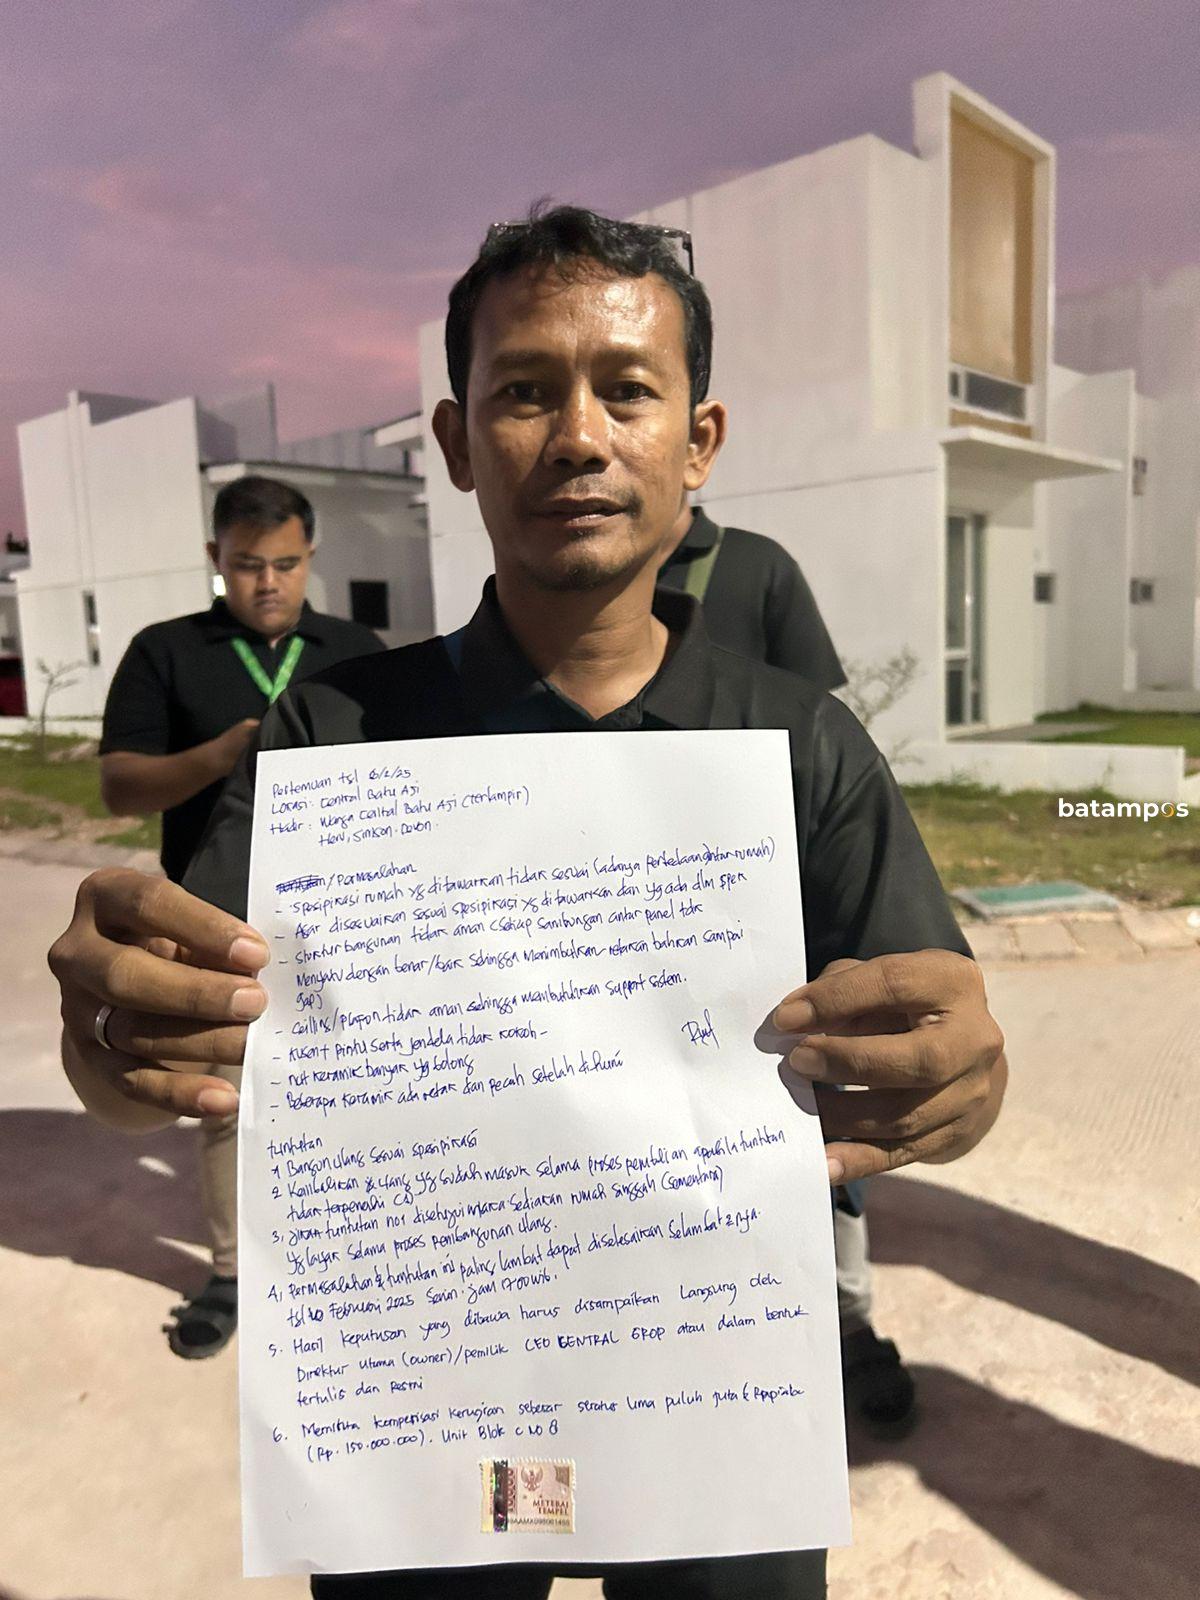 Pertemuan tgl 6/2/25
Lokasi: Central Batu Aji
Hadir: Warga Central Batu Aji (terlampir)
Heru, Simson. Devon.
/ Permasalahan
- Spesipikasi rumah yg ditawarkan tidak sesuai (adanya perbedaan antar rumah)
- Agar disesuaikan sesuai spesipikasi yg ditawarkan dan yg ada dlm spek
- Struktur bangunan tidak aman (setiap sambungan antar panel tdk
menyatu dengan benar/baik sehingga menimbulkan retakan bahkan sampai
gap)
- Ceilling/plapon tidak aman sehingga membutuhkan support sistem.
- Kusen + pintu serta jendela tidak kokoh -
- nat keramik banyak yg bolong
- Beberapa keramik ada retak dan pecah setelah dihuni
tuntutan
1 Bangun ulang sesuai spesipikasi
2 Kembalikan uang yg sudah masuk selama proses pembelian apabila tuntutan
tidak terpenuhi
3, Jika tuntutan no1 disetujui maka sediakan rumah singgah (sementara)
yg layak selama proses pembangunan ulang.
4, Permasalahan & tuntutan ini paling lambat dapat diselesaikan selambat2nya.
tgl 10 Februari 2025 Senin. jam 17.00 wib.
5. Hasil keputusan yang dibawa harus disampaikan langsung oleh
Direktur utama (owner)/pemilik CEO CENTRAL GROP atau dalam bentuk
tertulis dan Resmi
6. Meminta kompensasi kerugian sebesar seratus lima puluh juta
(Rp. 150.000.000). Unit Blok C NO 8
METERAI
TEMPEL
batampos